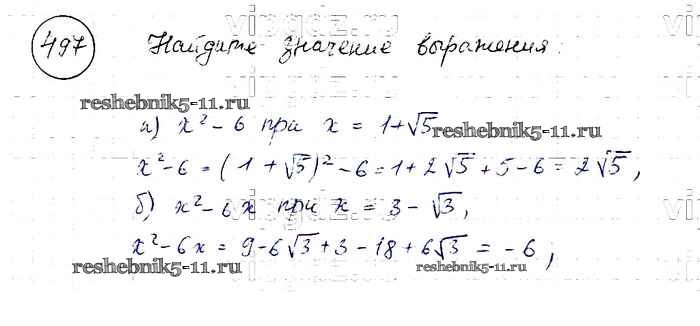 497 Найдите значение выражения:
reshebnik5-11.ru
а) x² - 6 при x = 1+√5
reshebnik5-11.ru
x² - 6 = (1 + √5)² - 6 = 1 + 2√5 + 5 - 6 = 2√5,
б) x² - 6x при x = 3 - √3,
x² - 6x = 9 - 6√3 + 3 - 18 + 6√3 = - 6;
reshebnik5-11.ru
reshebnik5-11.ru